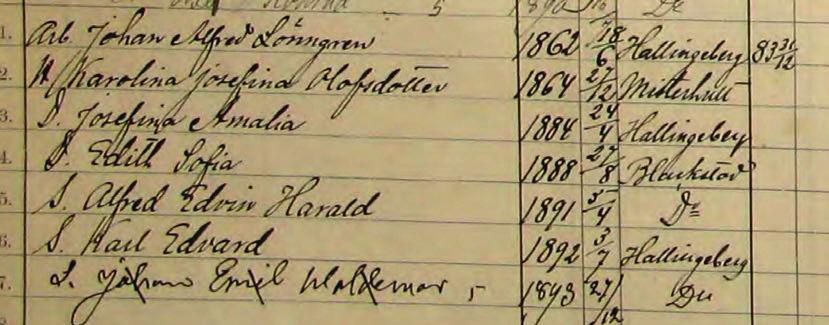 5 1890 De
1. Arb. Johan Alfred Lönngren 1862 18/6 Hallingeberg 83 31/12
2. H Karolina Josefina Olofsdotter 1864 27/12 Misterhult
3. D. Josefina Amalia 1884 24/4 Hallingeberg
4. D. Edith Sofia 1888 27/8 Blackstad
5. S. Alfred Edvin Harald 1891 5/4 Do
6. S. Karl Edvard 1892 3/7 Hallingeberg
7. S. Johan Emil Waldemar 1893 27/12 Do